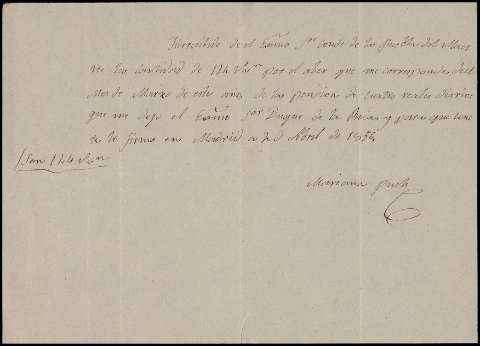 He recibido de el Exmo Sor conde de la puebla del Maes
tre la cantidad de 124 rs por el aber que me corresponde del
Mes de Marzo de este año, de la pension de cuatro reales diarios
que me dejo el Exmo Sor Duque de la Roca y para que cons
te lo firmo en Madrid a de Abril de
Son 124 rs vn
Mariana